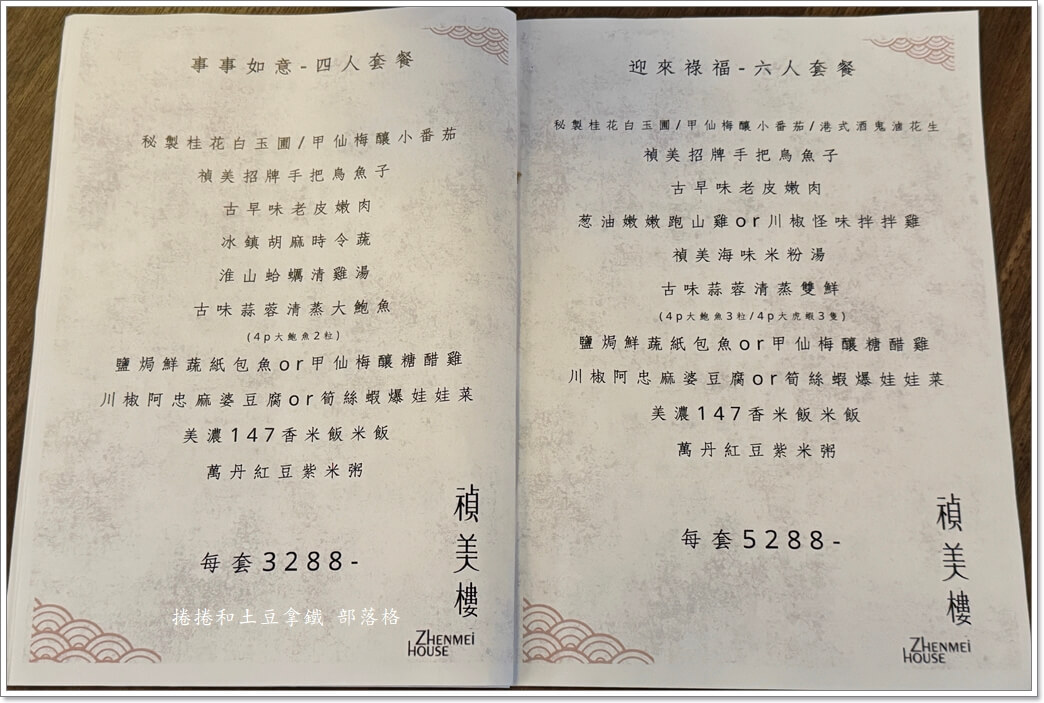 事事如意-四人套餐
秘製桂花白玉圃/甲仙梅釀小番茄
禎美招牌手把烏魚子
古早味老皮嫩肉
冰鎮胡麻時令蔬
淮山蛤蠣清雞湯
古味蒜蓉清蒸大鮑魚
(4p大鮑魚2粒)
鹽焗鮮蔬紙包魚or甲仙梅釀糖醋雞
川椒阿忠麻婆豆腐or筍絲蝦爆娃娃菜
美濃147香米飯米飯
萬丹紅豆紫米粥
每套3288-
禎美樓
ZHENMEI
HOUSE
捲捲和土豆拿鐵 部落格
迎來祿福-六人套餐
秘製桂花白玉圃/甲仙梅釀小番茄/港式酒鬼滷花生
禎美招牌手把烏魚子
古早味老皮嫩肉
葱油嫩嫩跑山雞or川椒怪味拌拌雞
禎美海味米粉湯
古味蒜蓉清蒸雙鮮
(4p大鮑魚3粒/4p大虎蝦3隻)
鹽焗鮮蔬紙包魚or甲仙梅釀糖醋雞
川椒阿忠麻婆豆腐or筍絲蝦爆娃娃菜
美濃147香米飯米飯
萬丹紅豆紫米粥
每套5288-
禎美樓
ZHENMEI
HOUSE